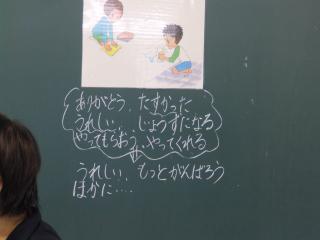 ありがとう、たすかった
うれしい、じょうずになる
やってもらおう、やってくれる
うれしい、もっとがんばろう
ほかに・・・・